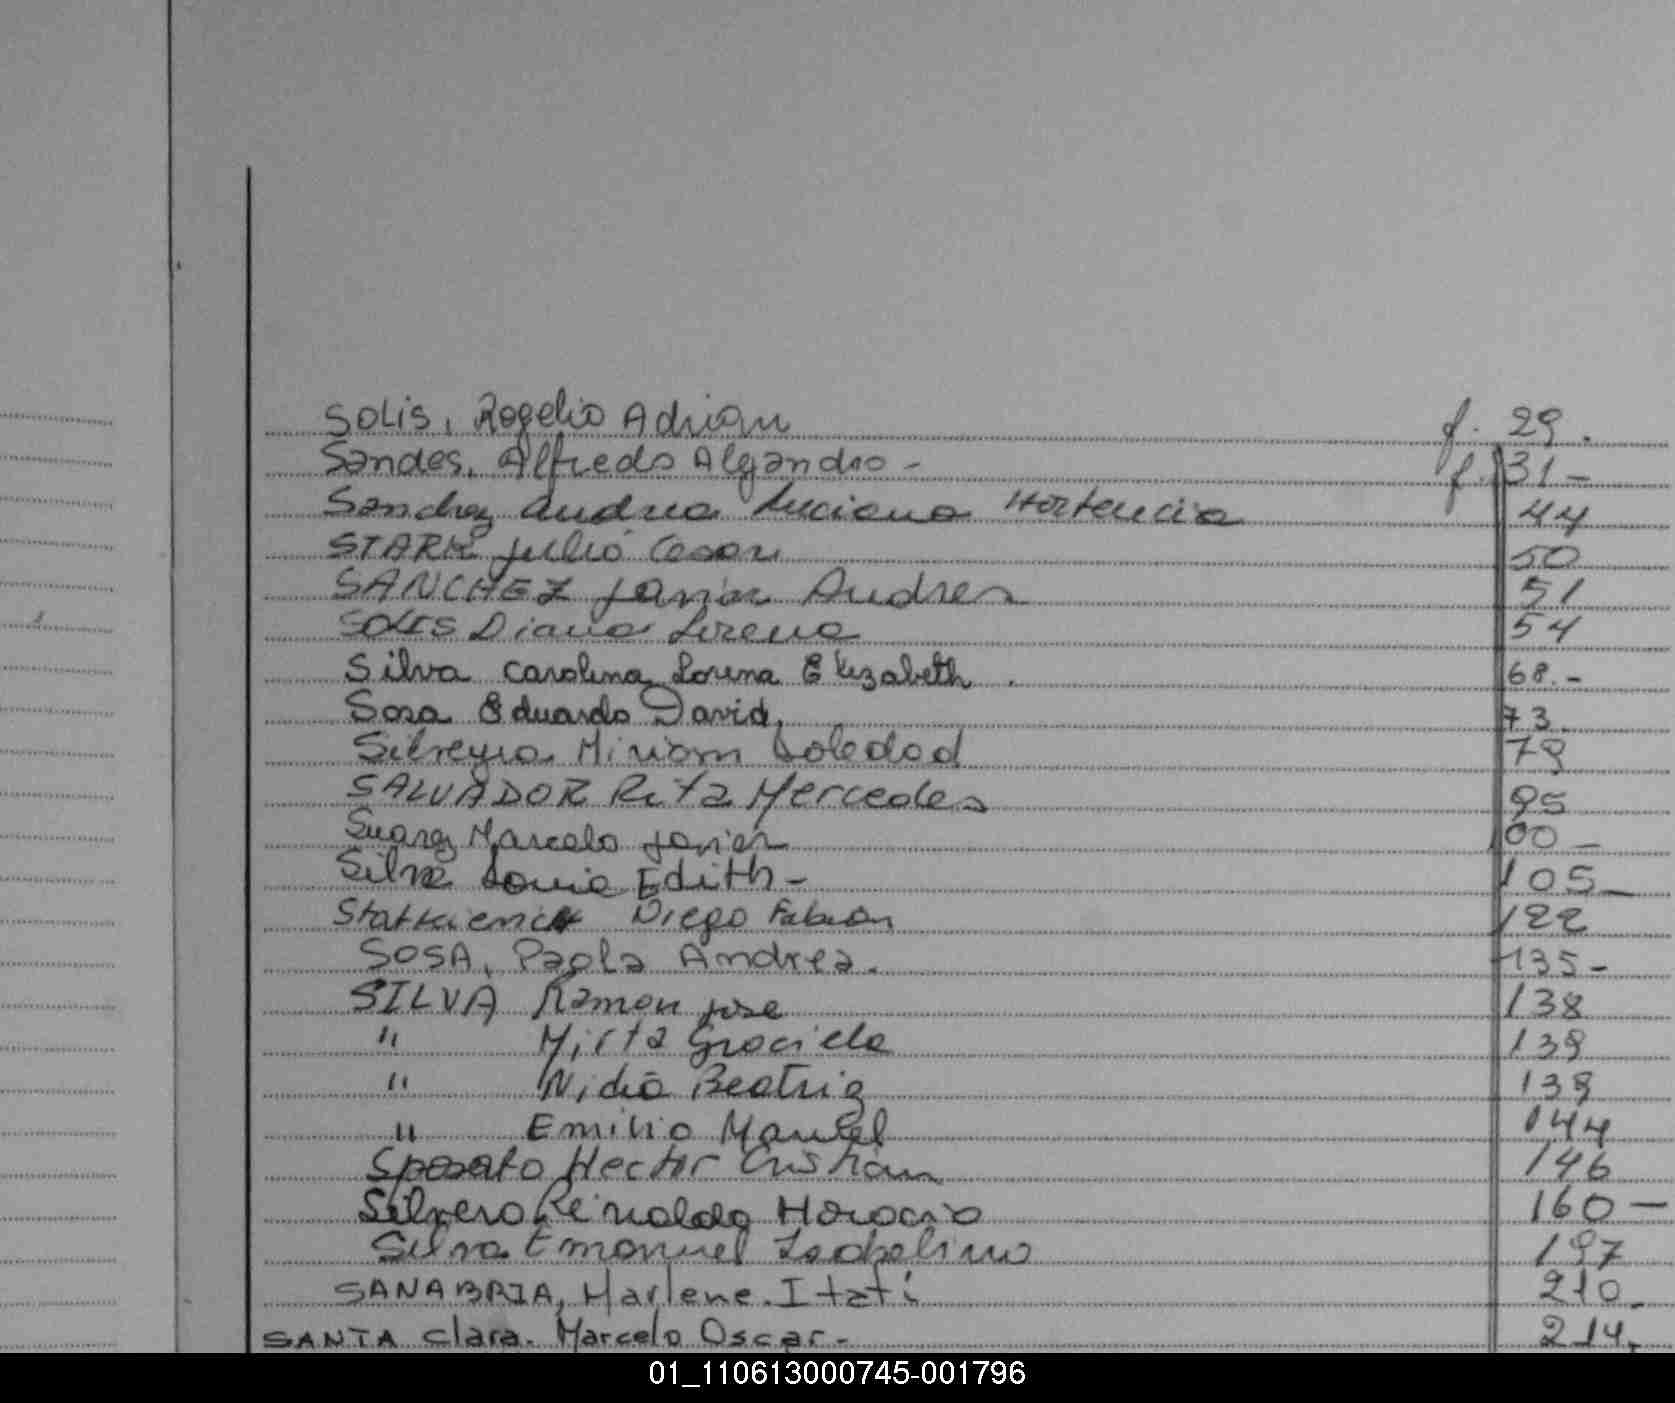 SOLIS, Rogelio Adrian f. 29.
Sandes, Alfredo Alejandro - f. 31 -
Sanchez Andrea Luciana Hortencia 44
STARK Julio Cesar 50
SANCHEZ Javier Andres 51
SOLIS Diana Lorena 54
Silva Carolina Lorena Elizabeth. 68. -
Sosa Eduardo David, 73.
Silveyra Miriam Soledad 79
SALVADOR Rita Mercedes 95
Suarez Marcelo Javier 100 -
Silva Sonia Edith - 105 -
Diego Fabian 122
SOSA, Paola Andrea. 135 -
SILVA Ramon Jose 138
" Mirta Graciela 139
" Nidia Beatriz 139
" Emilio Manuel 144
Sposato Hector Cristian 146
Silvero Reinaldo Horacio 160 -
Silva Emanuel Isabelino 197
SANABRIA, Marlene. Itatí 210.
SANTA Clara. Marcelo Oscar - 214.
01_110613000745-001796